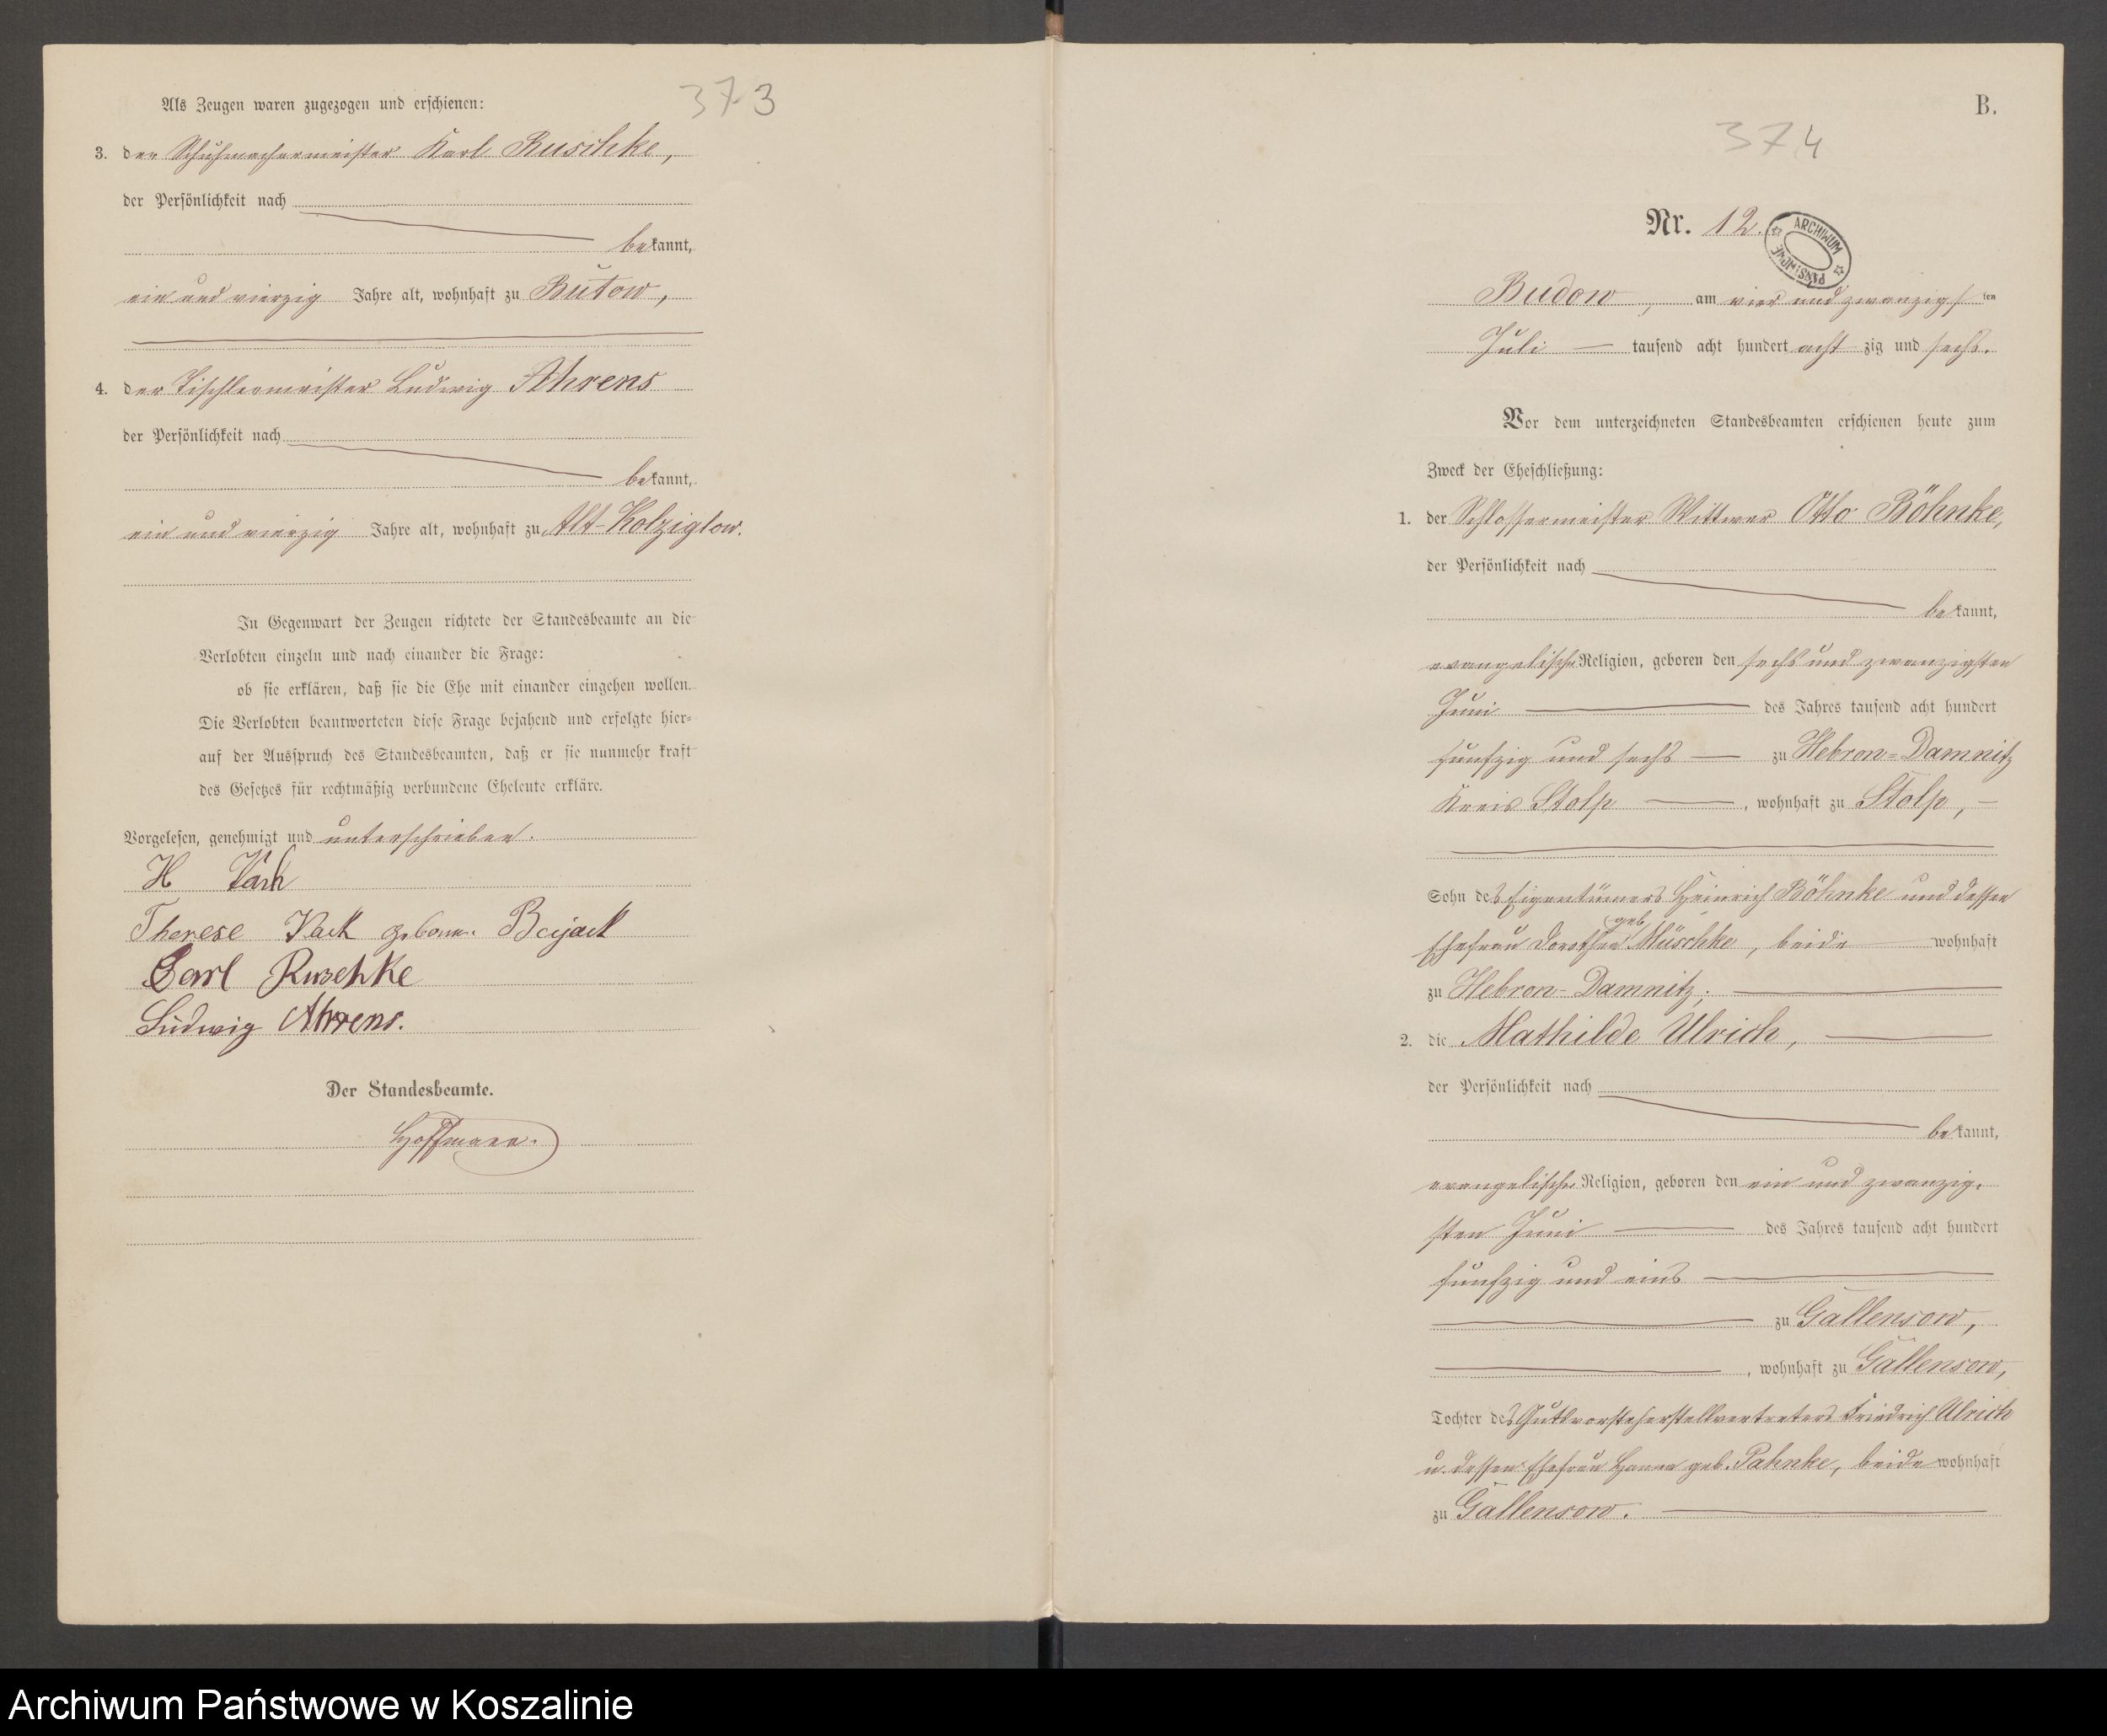 Als Zeugen waren zugezogen und erschienen:
373
3. der Schuhmachermeister Karl Ruschke,
der Persönlichkeit nach
bekannt,
ein und vierzig Jahre alt, wohnhaft zu Bütow,
4. der Tischlermeister Ludwig Ahrens
der Persönlichkeit nach
bekannt,
ein und vierzig Jahre alt, wohnhaft zu Alt-Kolziglow.
In Gegenwart der Zeugen richtete der Standesbeamte an die
Verlobten einzeln und nach einander die Frage:
ob sie erklären, daß sie die Ehe mit einander eingehen wollen.
Die Verlobten beantworteten diese Frage bejahend und erfolgte hier-
auf der Ausspruch des Standesbeamten, daß er sie nunmehr kraft
des Gesetzes für rechtmäßig verbundene Eheleute erkläre.
Vorgelesen, genehmigt und unterschrieben.
H
Therese geboren.
Carl Ruschke
Ludwig Ahrens.
Der Standesbeamte.
Hoffmann.
B.
374
Nr. 12.
ARCHIWUM PAŃSTWOWE
Budow, am vier und zwanzigsten
Juli tausend acht hundert achtzig und sechs.
Vor dem unterzeichneten Standesbeamten erschienen heute zum
Zweck der Eheschließung:
1. der Schlossermeister Wittwer Otto Böhnke,
der Persönlichkeit nach
bekannt,
evangelischer Religion, geboren den sechs und zwanzigsten
Juni des Jahres tausend acht hundert
funfzig und sechs zu Hebron-Damnitz
Kreis Stolp, wohnhaft zu Stolp,
Sohn des Eigentümers Heinrich Böhnke und dessen
Ehefrau Dorothea geb. Müschke, beide wohnhaft
zu Hebron-Damnitz;
2. die Mathilde Ulrich,
der Persönlichkeit nach
bekannt,
evangelischer Religion, geboren den ein und zwanzig-
sten Juni des Jahres tausend acht hundert
funfzig und eins
zu Gallensow,
, wohnhaft zu Gallensow,
Tochter des Gutsvorsteherstellvertreters Friedrich Ulrich
u. dessen Ehefrau Hanna geb. Pahnke, beide wohnhaft
zu Gallensow.
Archiwum Państwowe w Koszalinie